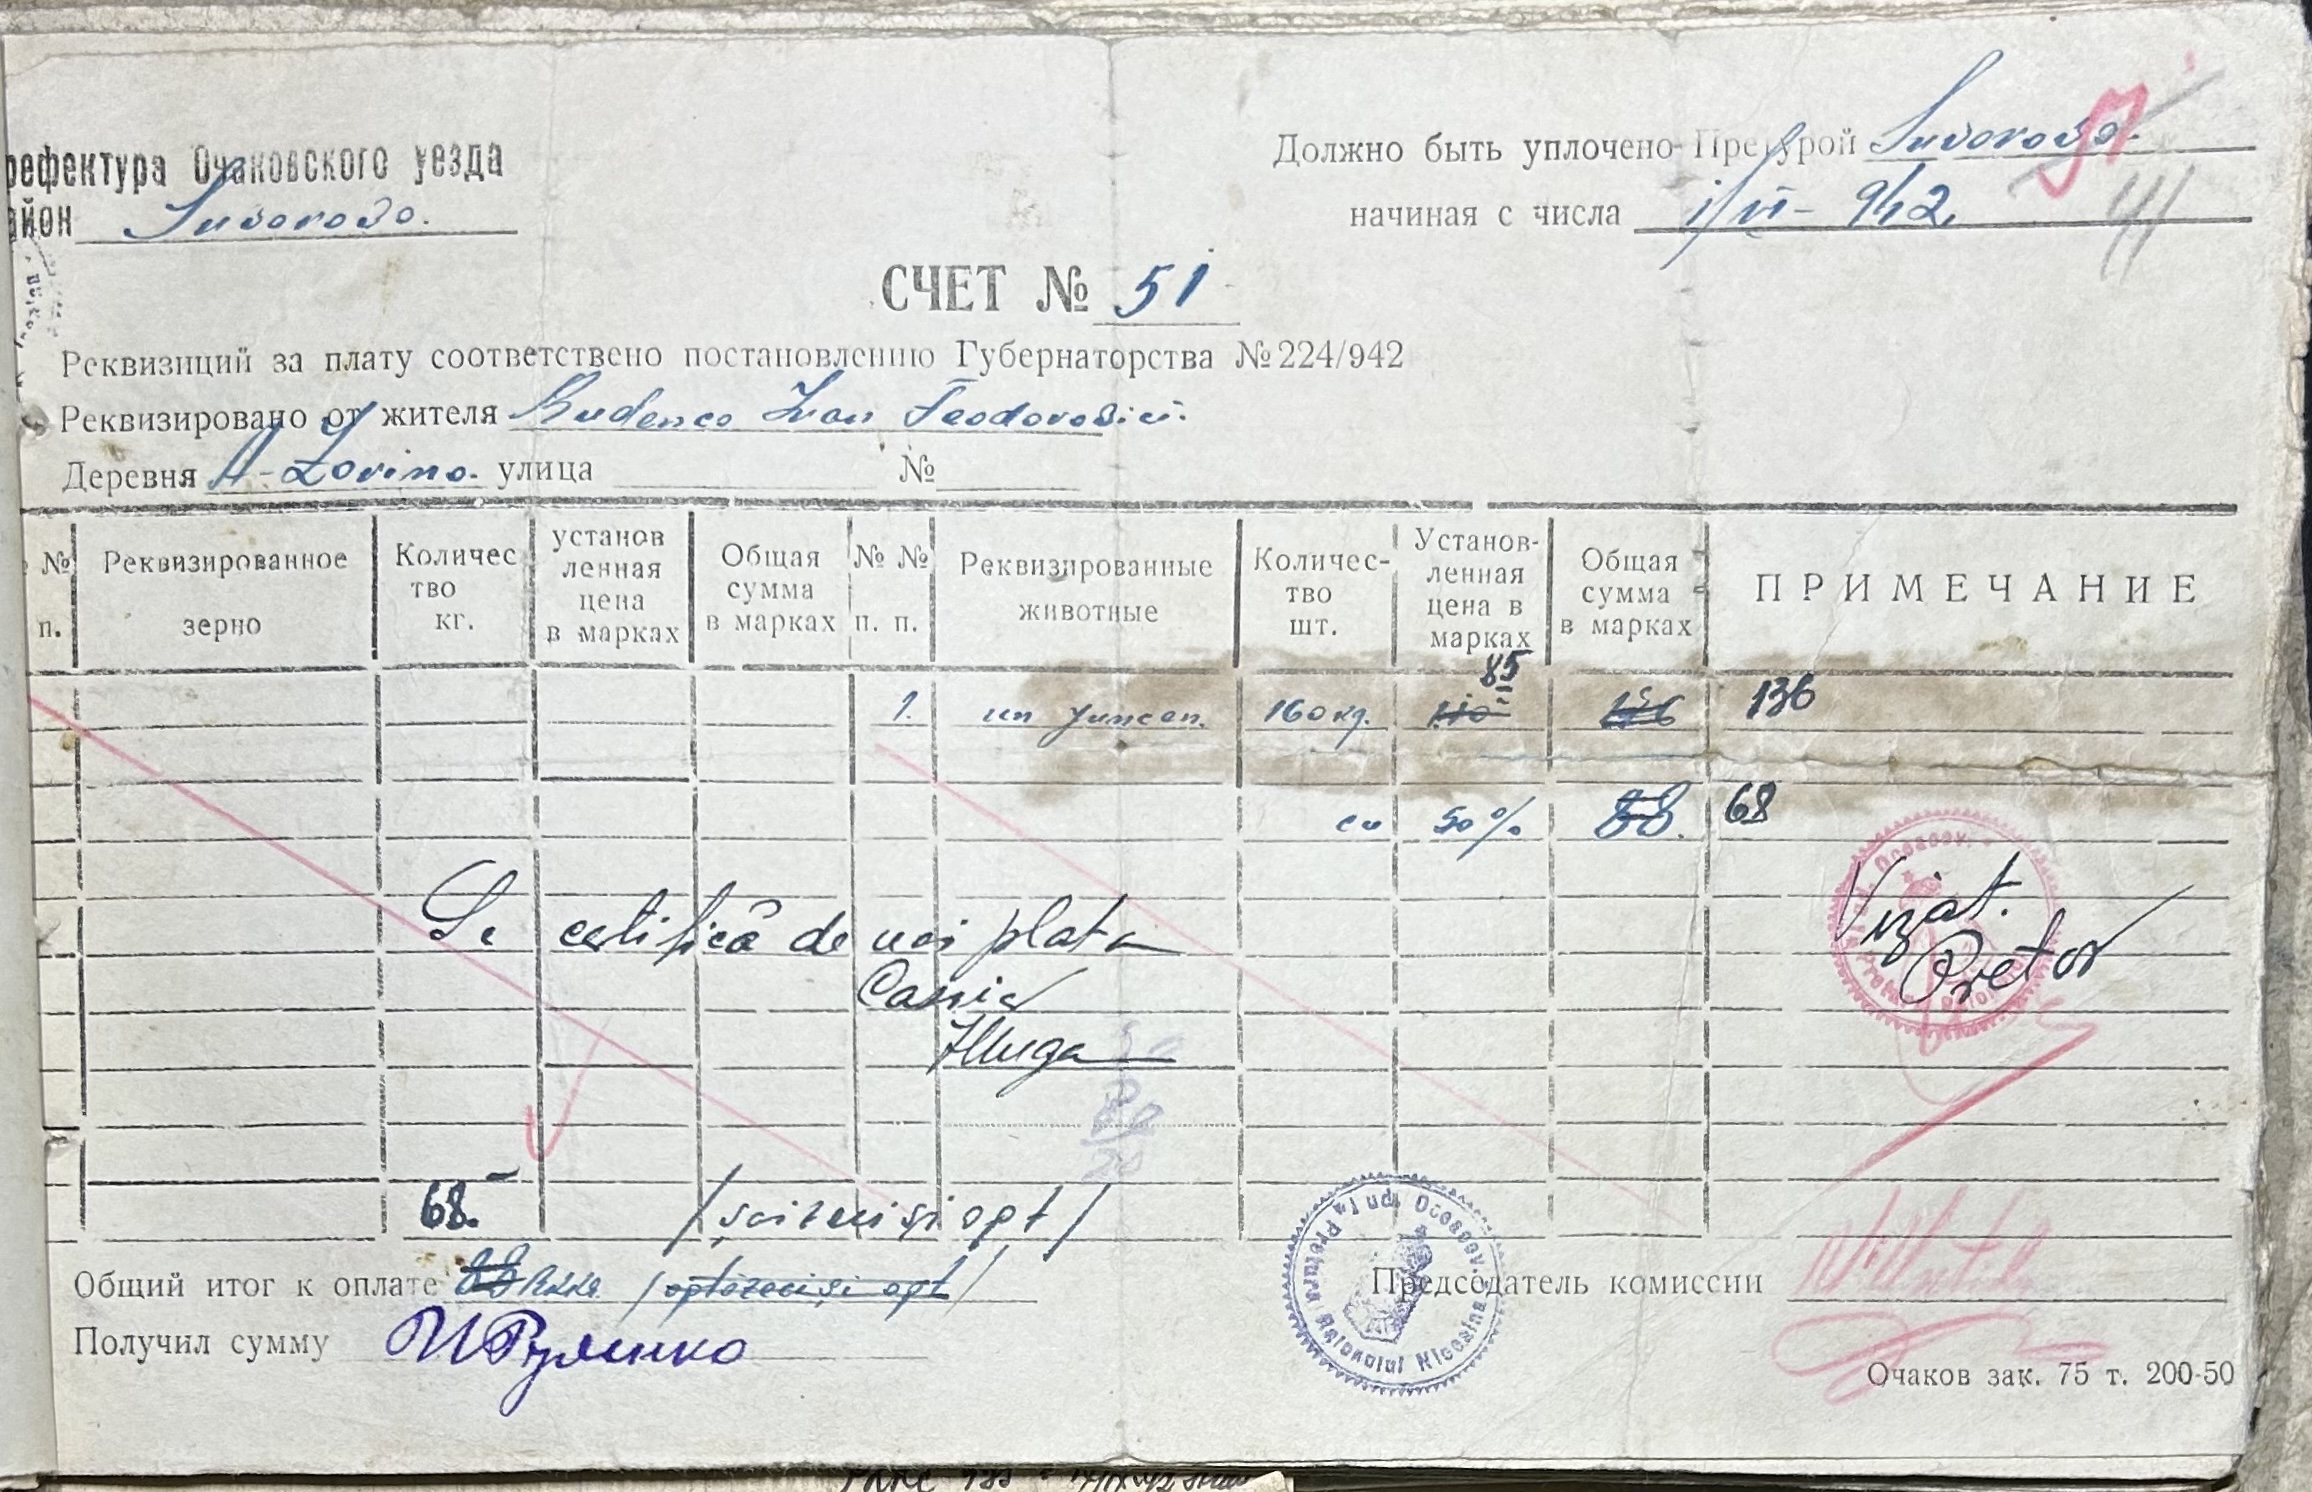 рефектура Очаковского уезда
айон Suvorovo.
Должно быть уплочено Претурой Suvorovo.
начиная с числа 1/VI-942.
51
41
СЧЕТ № 51
Реквизиций за плату соответствено постановлению Губернаторства № 224/942
Реквизировано от жителя Rudenco Ivan Feodorovici.
Деревня A-Zovino. улица №
№ п. Реквизированное зерно Количес тво кг. установ ленная цена в марках Общая сумма в марках № № п. п. Реквизированные животные Количес- тво шт. Установ- ленная цена в марках Общая сумма в марках ПРИМЕЧАНИЕ
85
1. un juncan. 160 кд. 110 136
cu 50% 88. 68
Se certifică de noi plata
Casier
Vizat.
Pretor
68.- /șaizeci și opt/
Общий итог к оплате 88 RKKS. /optzeci și opt/
Председатель комиссии
Получил сумму И Руденко
Pretura Raionului Oceacov
Очаков зак. 75 т. 200-50